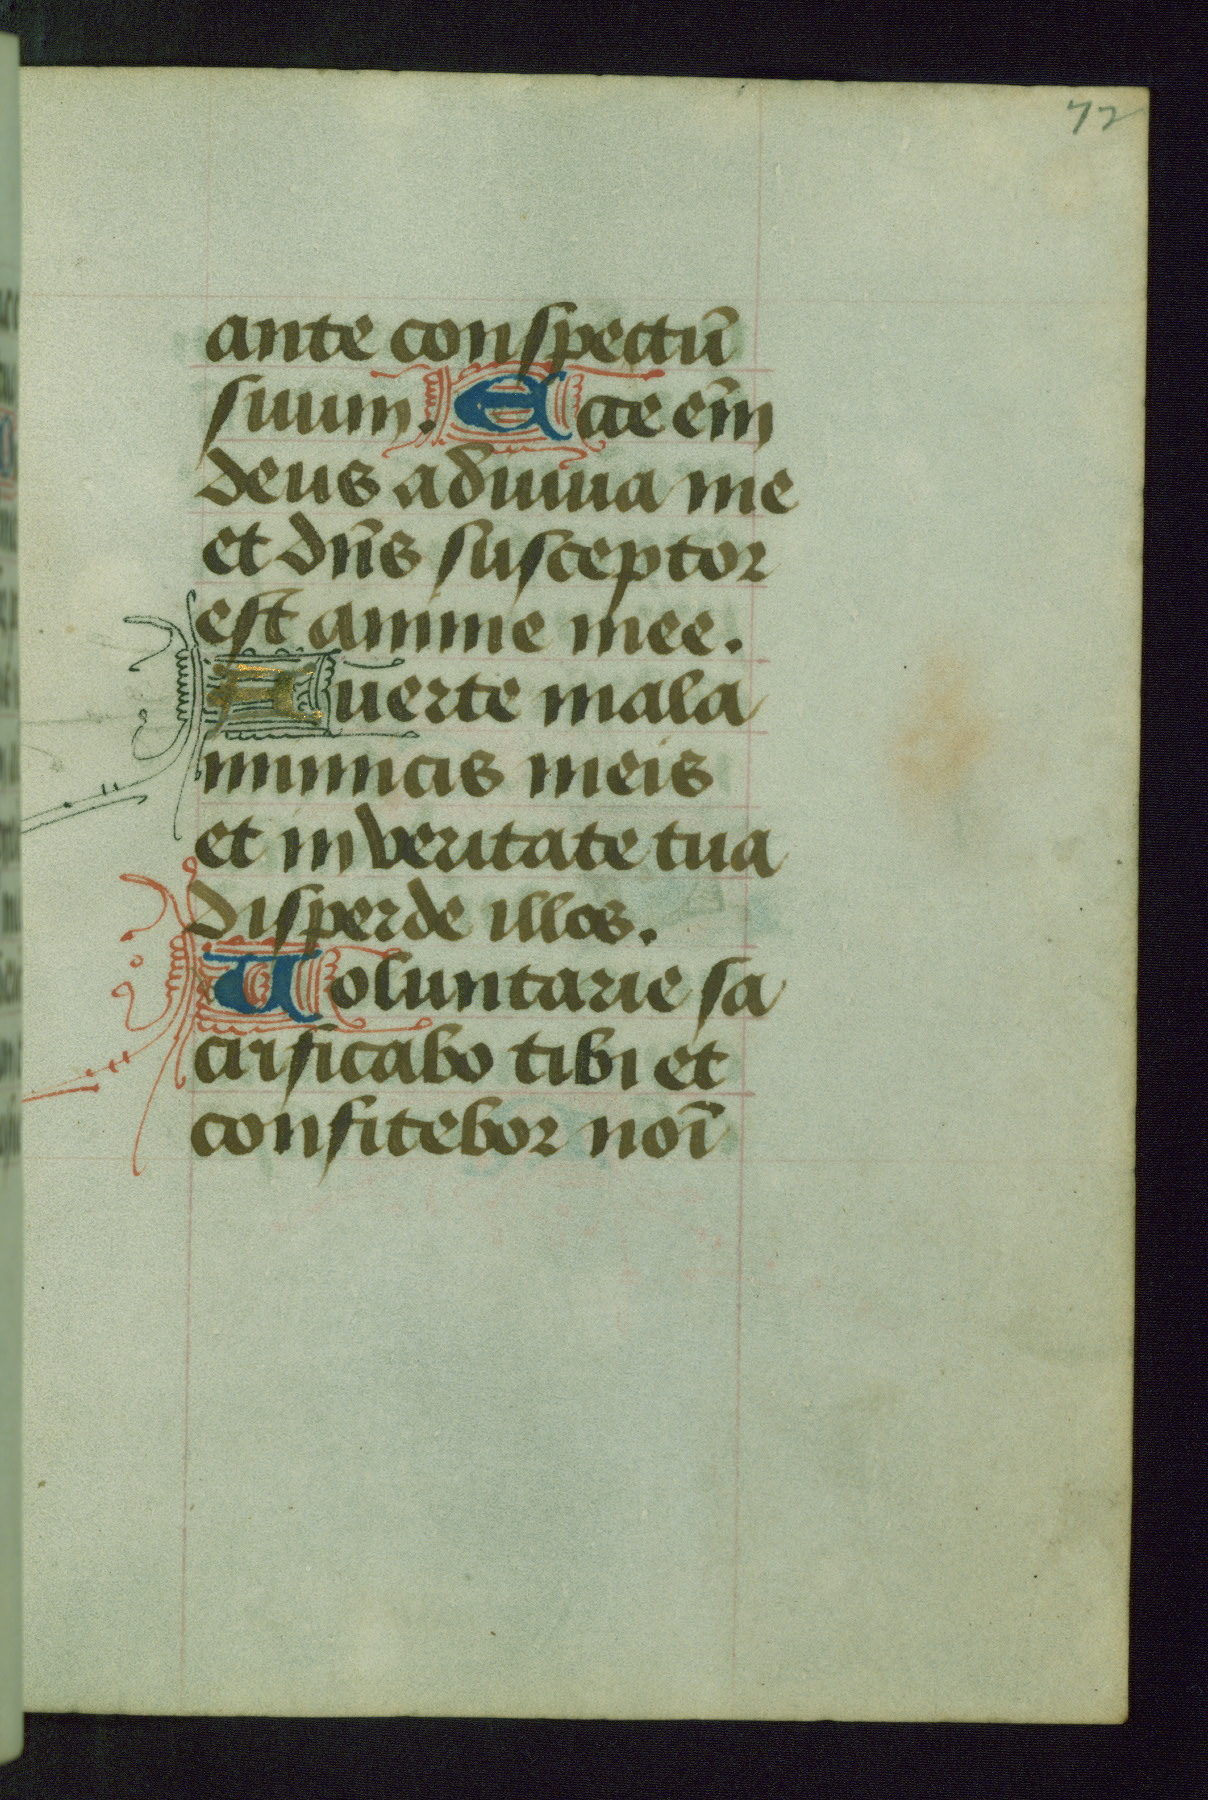 72
ante conspectū
suum. Ecce em̄
deus adiuua me
et dn̄s susceptor
est anime mee.
Auerte mala
inimicis meis
et in veritate tua
disperde illos.
Uoluntarie sa
crificabo tibi et
confitebor noī